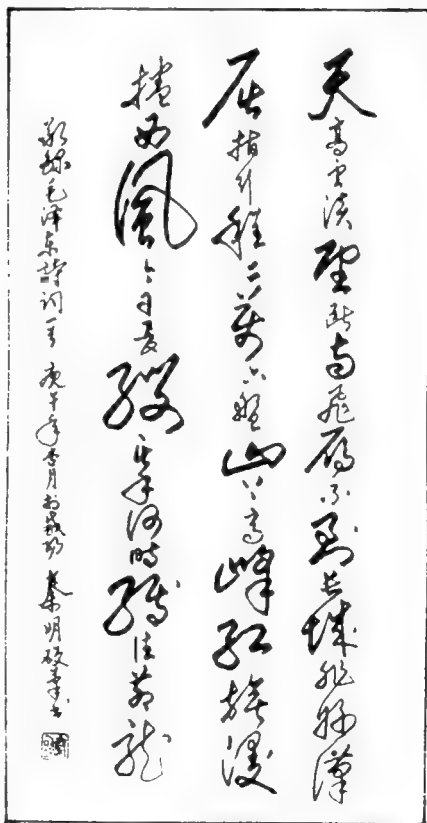 天高云淡望断南飞雁不到长城非好汉
屈指行程二万六盘山上高峰红旗漫
捲西风今日长缨在手何时缚住苍龙
敬録毛泽东詩词一首 庚午年杏月於成都 秦明硬笔书